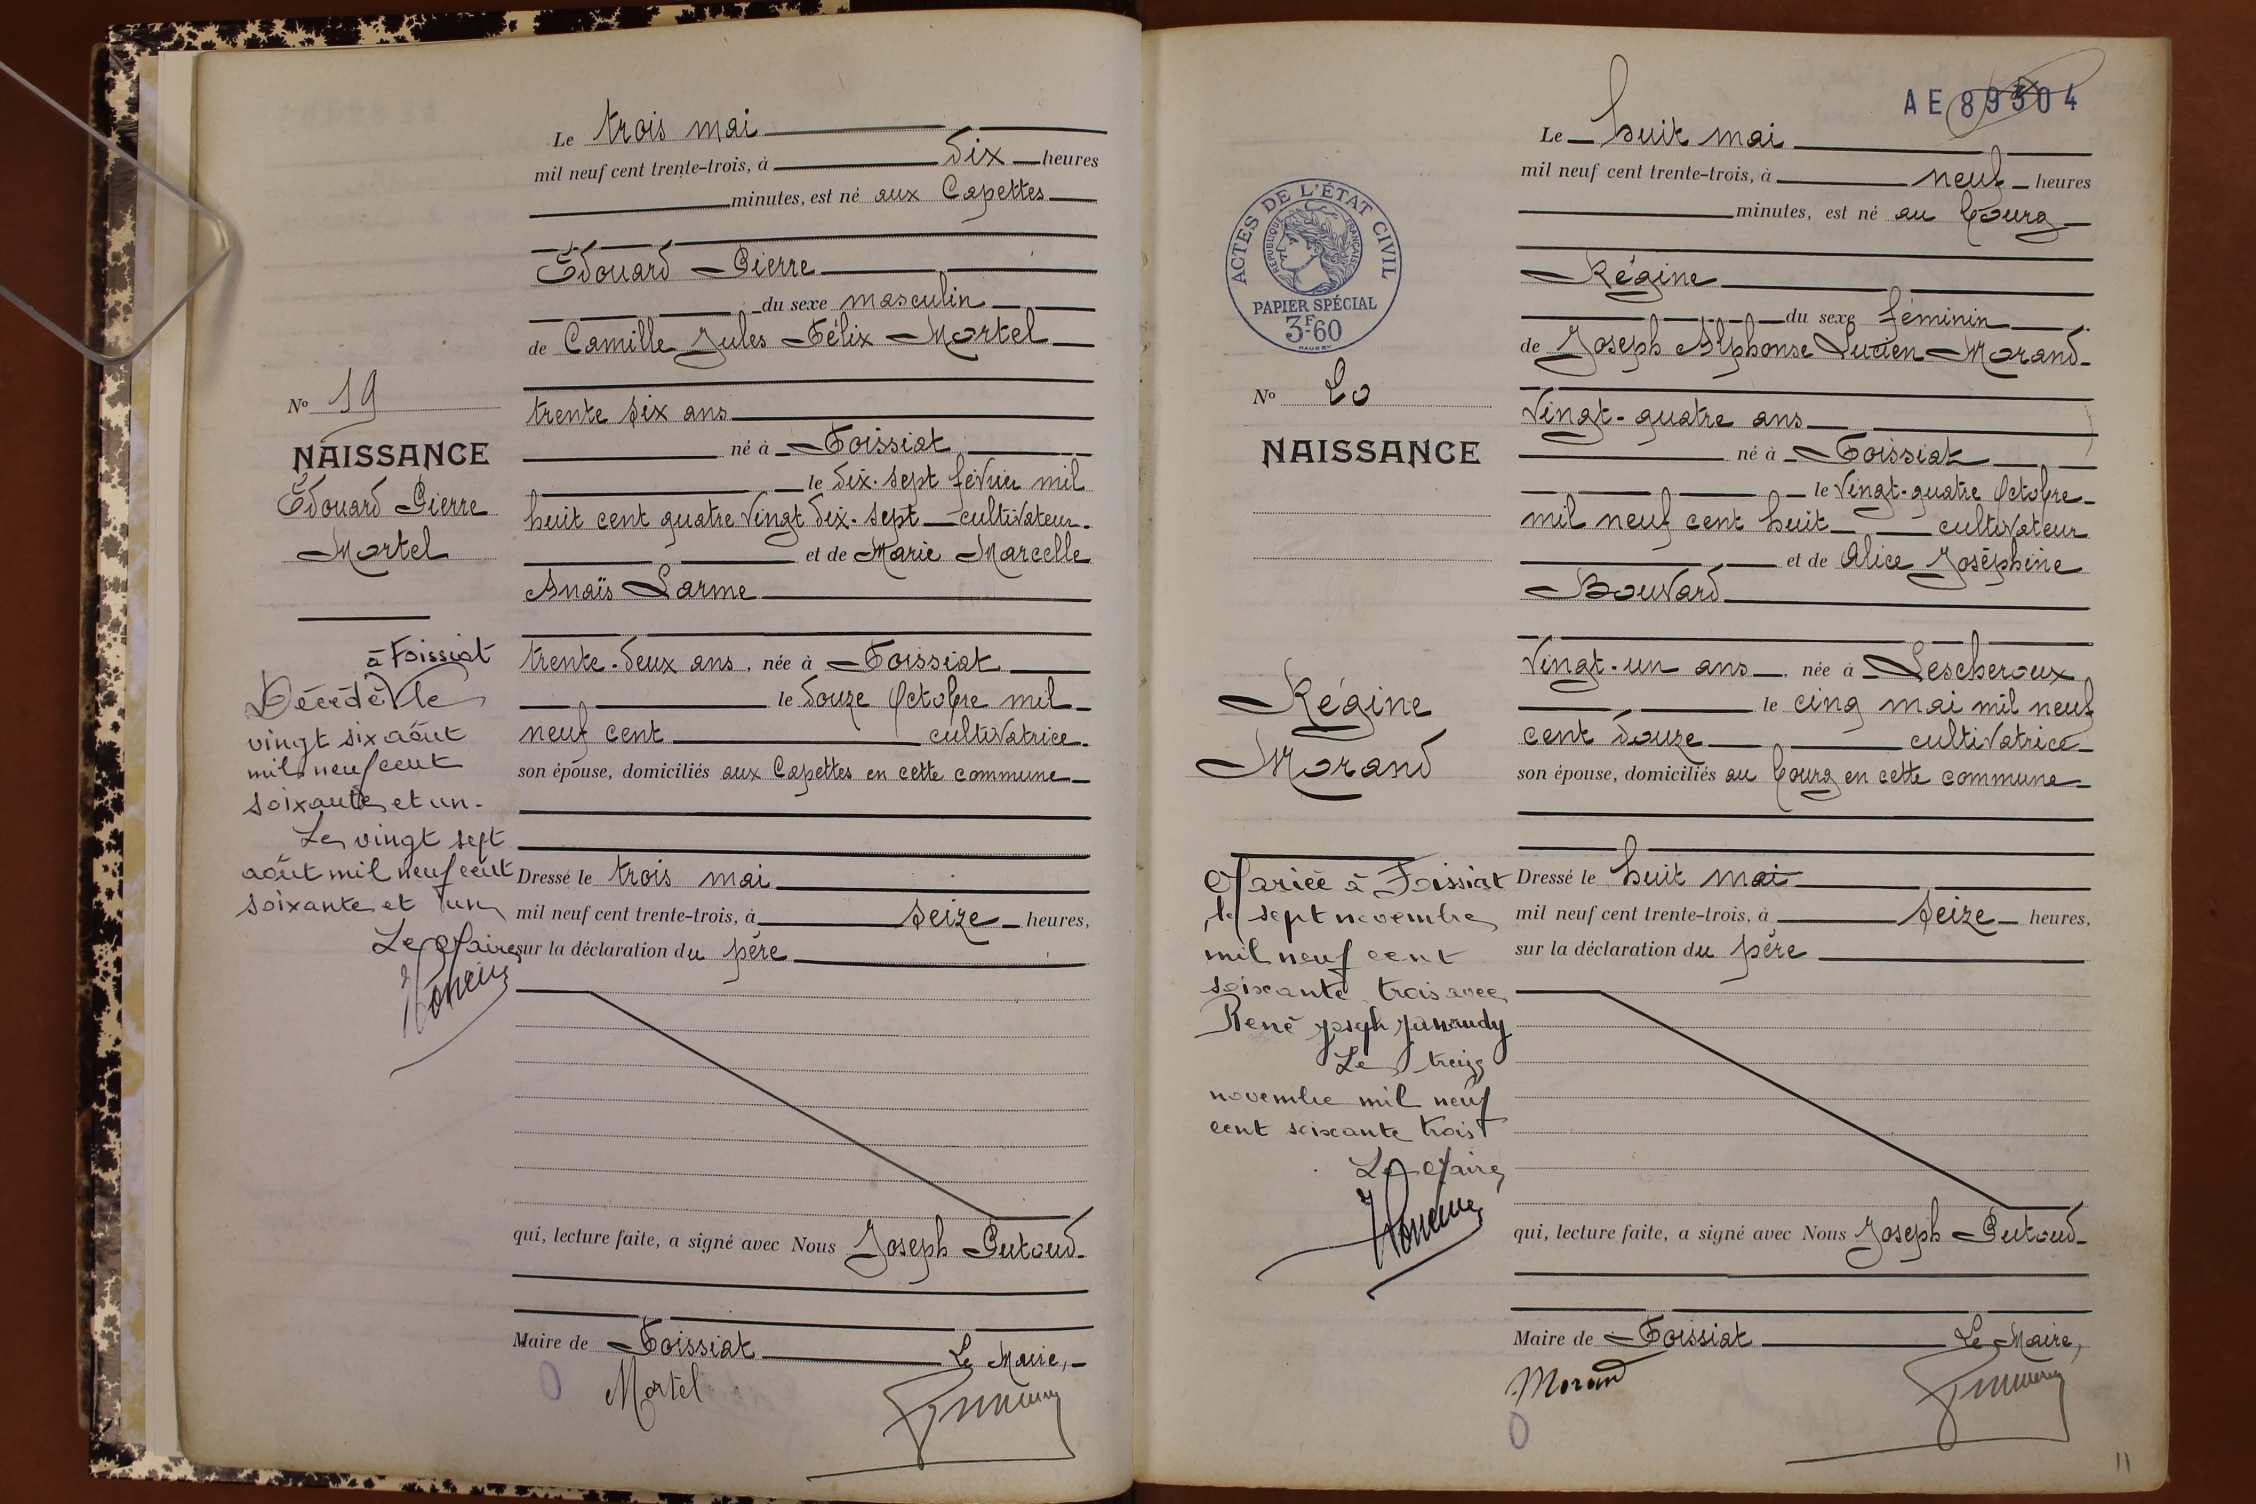 Le trois mai
mil neuf cent trente-trois, à dix heures
minutes, est né aux Capettes
Édouard Pierre
du sexe masculin
de Camille Jules Félix Mortel
trente six ans
né à Foissiat
le dix-sept février mil
huit cent quatre vingt dix-sept cultivateur
et de Marie Marcelle
Anaïs Larme
trente-deux ans, née à Foissiat
le douze Octobre mil
neuf cent cultivatrice
son épouse, domiciliés aux Capettes en cette commune
Dressé le trois mai
mil neuf cent trente-trois, à seize heures,
sur la déclaration du père
qui, lecture faite, a signé avec Nous Joseph Putoud
Maire de Foissiat Le Maire,
Mortel
No 19
NAISSANCE
Édouard Pierre
Mortel
à Foissiat
Décédé le
vingt six août
mil neuf cent
soixante et un.
Le vingt sept
août mil neuf cent
soixante et un
Le Maire
AE 89304
Le huit mai
mil neuf cent trente-trois, à neuf heures
minutes, est né au bourg
Régine
du sexe féminin
de Joseph Alphonse Lucien Morand
Vingt-quatre ans
né à Foissiat
le Vingt-quatre Octobre
mil neuf cent huit cultivateur
et de Alice Joséphine
Bouvard
Vingt-un ans, née à Lescheroux
le cinq mai mil neuf
cent douze cultivatrice
son épouse, domiciliés au bourg en cette commune
Dressé le huit mai
mil neuf cent trente-trois, à seize heures,
sur la déclaration du père
qui, lecture faite, a signé avec Nous Joseph Putoud
Maire de Foissiat Le Maire,
Morand
ACTES DE L'ÉTAT CIVIL
RÉPUBLIQUE FRANÇAISE
PAPIER SPÉCIAL
3F-60
No 20
NAISSANCE
Régine
Morand
Mariée à Foissiat
le sept novembre
mil neuf cent
soixante trois avec
René Joseph Janaudy
Le treize
novembre mil neuf
cent soixante trois
Le Maire
11